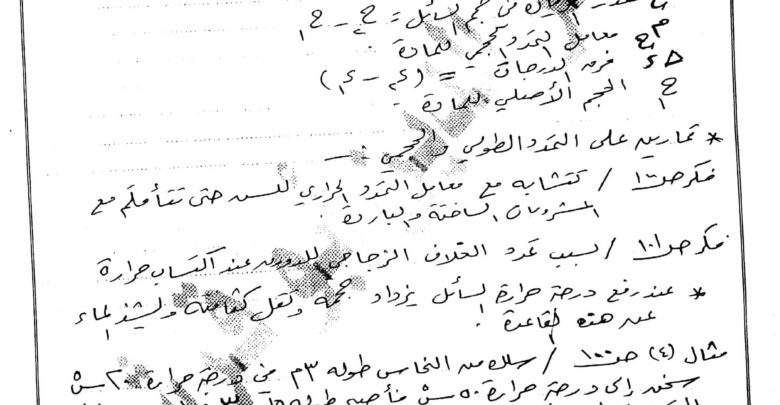 مقدار الزيادة في حجم السائل = ح٢ - ح١
معامل التمدد الحجمي للمادة .
Δ د فرق الدرجات = (د٢ - د١)
ح١ الحجم الأصلي للمادة .
* تمارين على التمدد الطولي والحجمي : ــ
فكر ص١٠٠ / لتتشابه مع معامل التمدد الحراري للسن حتى تتأقلم مع
المشروبات الساخنة والباردة .
فكر ص١٠١ / لسبب تمدد الغلاف الزجاجي للدورق عند اكتساب حرارة
* عند رفع درجة حرارة السائل يزداد حجمه وتقل كثافته ويشذ الماء
عن هذه القاعدة .
مثال (٤) ص١٠٠ / سلك من النحاس طوله ٣م في درجة حرارة ٢٠ س°
سخن إلى درجة حرارة ٥٠ س° فأصبح طوله